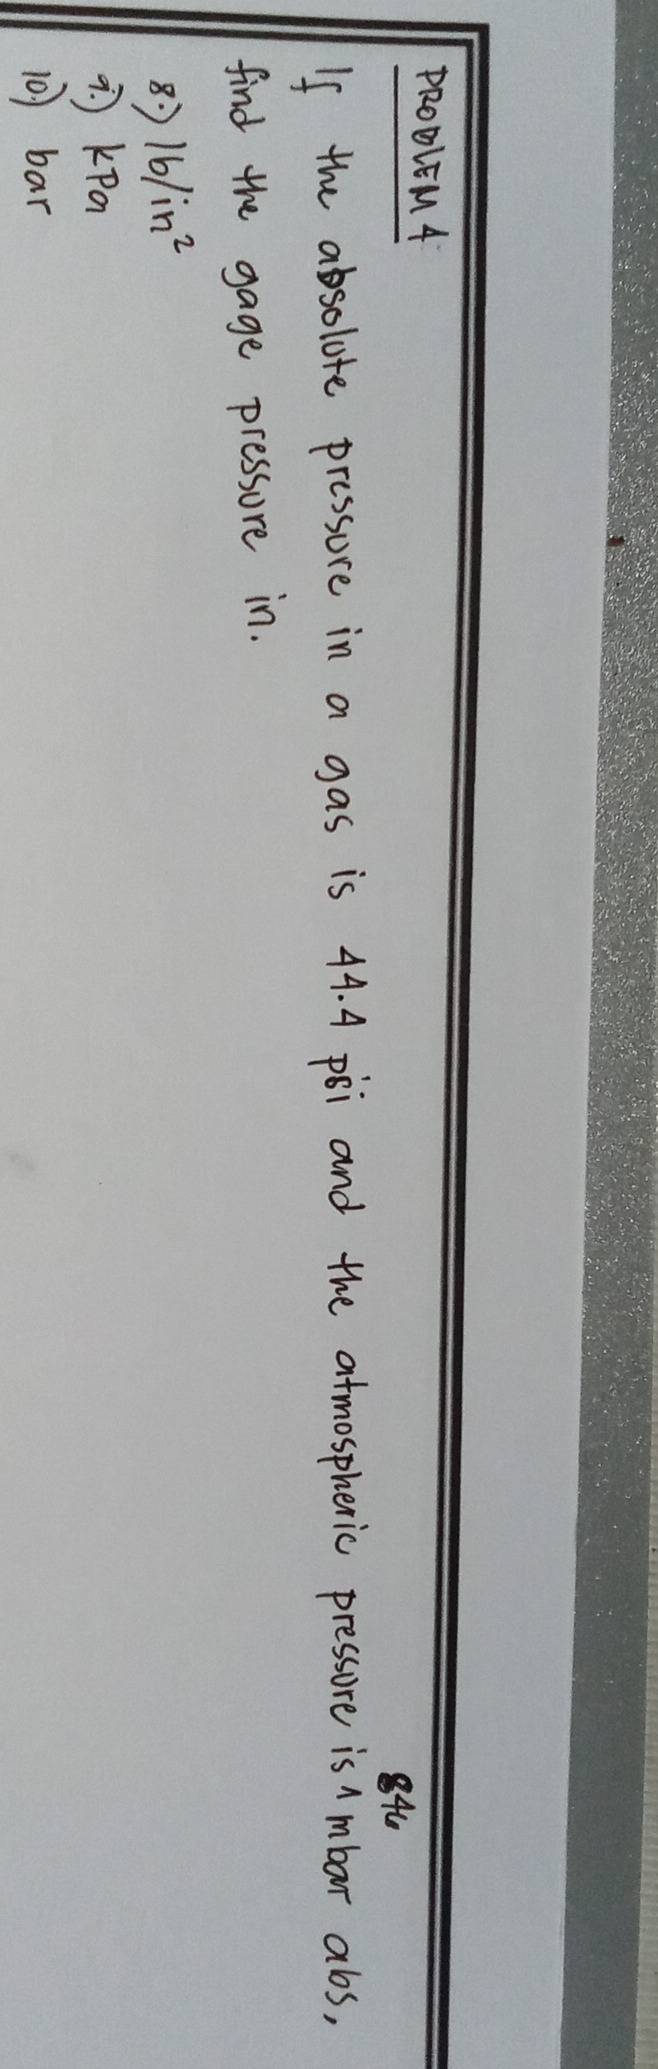 PROBLEM 4
846
If the absolute pressure in a gas is 44.4 psi and the atmospheric pressure is ^ mbar abs,
find the gage pressure in.
8.) lb/in²
9.) kPa
10.) bar